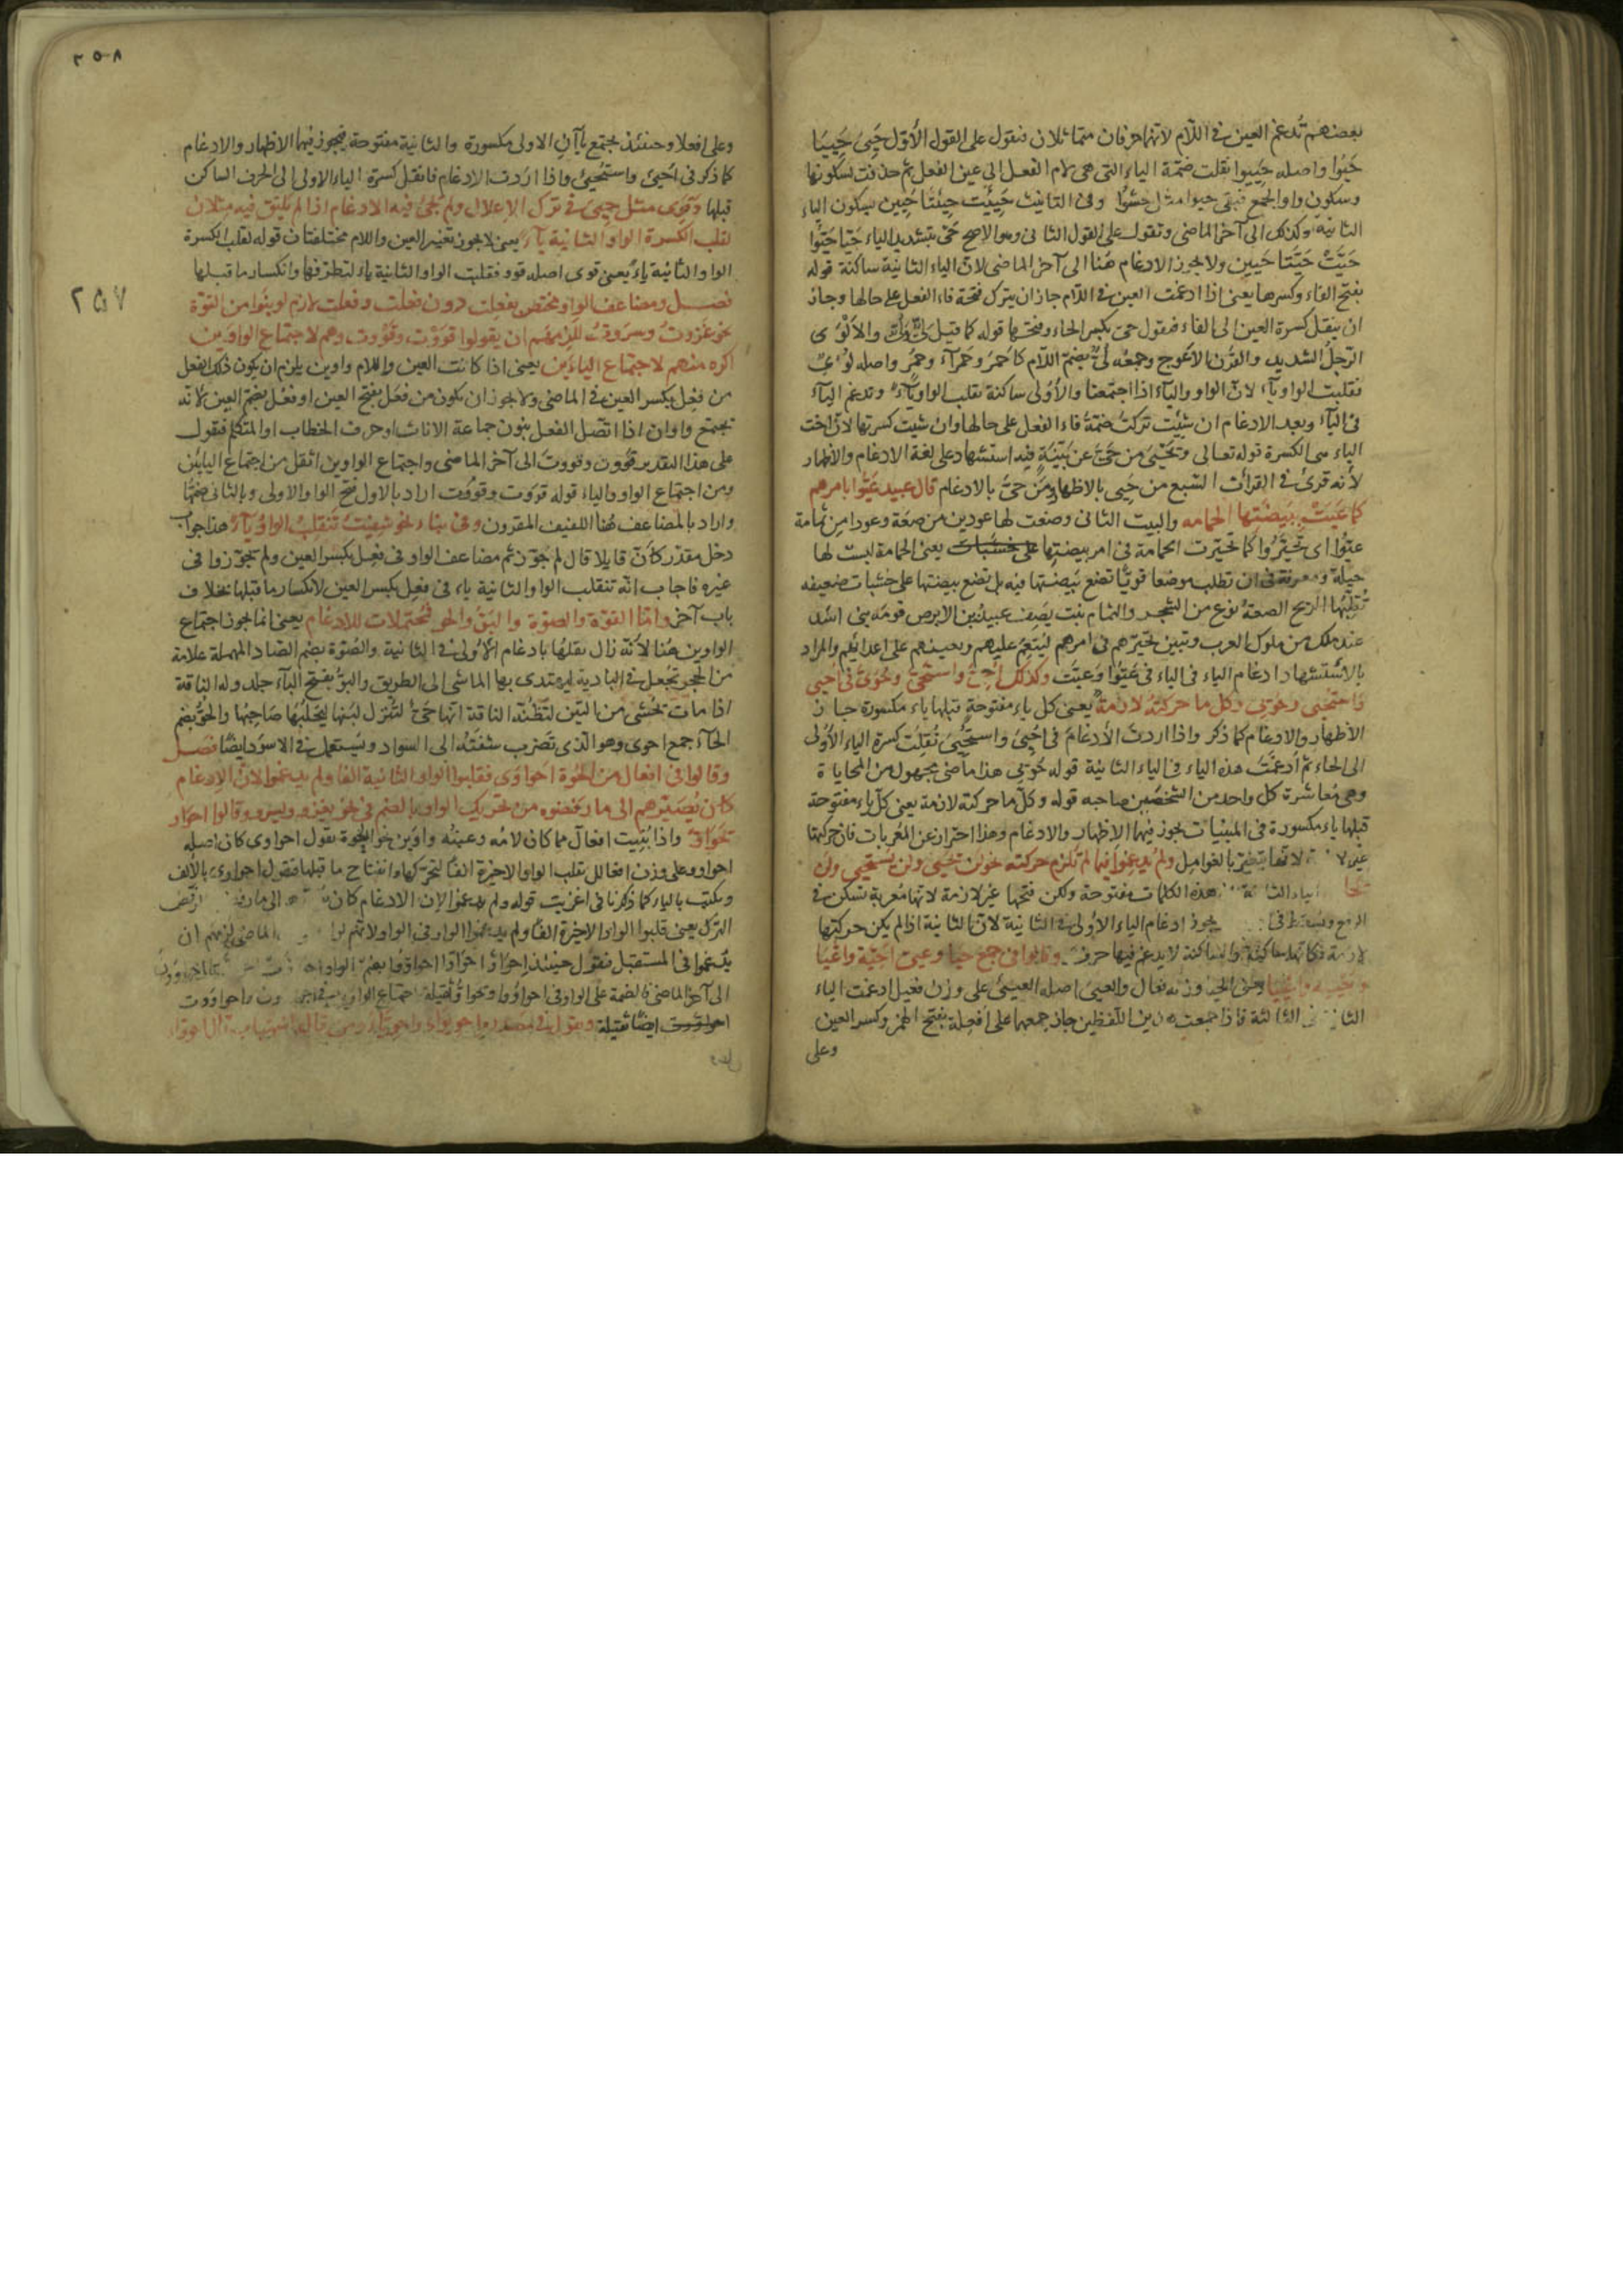 بعضهم تُدغم العين في اللّام لانهما حرفان متماثلان فنقول على القول الأوّل حَيِيَ حَيِيَا
حَيُوا واصله حَيِيوا نقلت ضمّة الياء التي هي لام الفعل الى عين الفعل ثم حذفت لسكونها
وسكون واو الجمع فبقى حيوا مثل خشُوا وفى التانيث حَيِيَت حَيِيَتا حَيِين بسكون الياء
الثانية وكذلك الى آخر الماضى وتقول على القول الثانى وهو الاصح حَيَّ بتشديد الياء حَيّا حَيّوا
حَيَّتْ حَيَّتا حَيِين ولا يجوز الادغام هُنا الى آخر الماضى لانّ الياء الثانية ساكنة قوله
بفتح الفاء وكسرها يعنى اذا ادغمت العين في اللّام جاز ان يترك فتحة فاء الفعل على حالها وجاز
ان ينقل كسرة العين الى الفاء فيقول حىّ بكسر الحاء وفتحها قوله كما قيل لىّ والألْوَى
الرّجلُ الشديد والقرن الاعوج وجمعُه لُىّ بضمّ اللّام كاحمرَ وحَمرآء وحُمرٍ واصله لُوْىٌ
فقلبت الواو يآء لانّ الواو واليآء اذا اجتمعتا والأولى ساكنة تقلب الواو يآءً وتدغم اليآء
فى اليآء وبعد الادغام ان شِئتَ تركتَ ضمّة فاء الفعل على حالها وان شئت كسرتها لانّ اخت
الياء هى الكسرة قوله تعالى ويَحْيَى من حَىَّ عن بيّنةٍ فيه استشهاد على لغة الادغام والاظهار
لأنه قرئ في القراآت السّبع من حَيِىَ بالاظهار ومَن حَىَّ بالادغام قال عبيد عَيُّوا بامرهم
كما عَيَّتْ بِبَيضَتها الحمامه والبيت الثانى وضعت لها عودين من ضعَة وعودا من ثمامة
عيّوا اى تحيّرُوا كما تحيّرت الحمامة فى امر بيضتِها على خشبات يعنى الحمامة ليست لها
حيلة ومعرفة فى ان تطلب موضعا قويّا تضع بَيضتها فيه بل تضع بيضتها على خشبات ضعيفه
تُقلِّبُها الريح الضعةُ نوع من الشجر والثمام نبت يَصِف عبيدُ بن الابرص قومَه بنى اسَد
عند ملك من ملوك العرب ويبين تحيّرهم فى امرهم ليُنعِم عليهم ويعينهم على اعدائهم والمراد
بالاستشهاد ادغام الياء فى الياء فى عَيُّوا وعَيَّت وكذلك أُحِىَّ واستُحىَّ وحُوىَّ فى اُحيِى
واستُحيِى وحُويِى وكل ما حركتُه لازمةٌ يعنى كل ياء مفتوحةٍ قبلها ياء مكسورة جاز
الاظهار والادغام كما ذكر واذا اردتَ الأدغامَ فى اُحيِىَ واستُحْيِىَ نُقِلَت كسرة الياء الأولى
الى الحاء ثم اُدغمَت هذه الياء فى الياء الثانية قوله حُويى هذا ماضى مجهول من المحاياة
وهى مُعاشرة كل واحد من الشخصَين صاحبه قوله وكلّ ما حركته لازمة يعنى كلّ ياء مفتوحة
قبلها ياء مكسورة فى المبنيات يجوز فيهما الاظهار والادغام وهذا احتراز عن المُعربات فانّ حركتها
لانها تتغيّر بالعوامِل ولم يُدغِمُوا فيما لم تلزم حركته نحو لن يحيى ولن يستحيى ولن
هذه الكلمات مفتوحة ولكن فتحها غير لازمة لانها مُعربة تسكن فى
الرفع يجوز ادغام الياء الأولى فى الثانية لانّ الثانية اذا لم يكن حركتها
لازمة فكانها ساكنة والساكنة لا يدغم فيها حرف وقالوا فى جمع حياء وعيىّ احيّة واعيّاء
واحييَة واعيياء وزنه فعال والعيىّ اصله العيىىُ على وزن فعيل ادغمت الياء
الثانية فى الثالثة فاذا جمعت هذين اللّفظين جاز جمعهما على افعلة بفتح الهمز وكسر العين
وعلى
٢٥٨
وعلى افعلاء وحينئذ يجتمع ياآنِ الاولى مكسورة والثانية مفتوحة فيجوز فيهما الاظهار والادغام
كما ذكر فى اُحيِىَ واستُحْيِىَ واذا اردت الادغام فانقل كسرة الياء الاولى الى الحرف الساكن
قبلها وقَوِى مثل حيِى فى ترك الإعلال ولم يجئ فيه الادغام اذا لم يلتق فيه مثلان
لقلب الكسرة الواو الثانية يآءً يعنى لا يجوز تغير العين واللام مختلفتان قوله لقلب الكسرة
الواو الثانية ياءً يعنى قوى اصله قوِوَ فقلبت الواو الثانية ياء لتطرّفها وانكسار ما قبلها
فصل ومضاعف الواو مختص بفعِلت دون فعَلت وفعُلت لانهم لو بنَوا من القوّة
نحو غزوتُ وسروتُ للزمهم ان يقولوا قوَوْت وقوُوت وهم لاجتماع الواوين
اكره منهم لاجتماع الياءَين يعنى اذا كانت العين واللام واوين يلزم ان يكون ذلك الفعل
من فعِل بكسر العين فى الماضى ولا يجوز ان يكون من فعَل بفتح العين او فعُل بضم العين لانّه
تجتمع واوان اذا اتّصل الفعل بنون جماعة الاناث او حرف الخطاب او المتكلم فتقول
على هذا التقدير قوَون وقووتَ الى آخر الماضى واجتماع الواوين اثقل من اجتماع اليايَين
ومن اجتماع الواو والياء قوله قووت وقووت اراد بالاول فتح الواو الاولى وبالثانى ضمّها
واراد بالمضاعف هُنا اللفيف المقرون وفى بناء نحو شقِيتُ تنقلبُ الواو يآءً هذا جوابُ
دخل مقدّر كأنّ قايلا قال لم جوّزتم مضاعف الواو فى فعِل بكسر العين ولم تجوّزوا فى
غيره فاجاب انّه تنقلب الواو الثانية ياء فى فعِل بكسر العين لانكسار ما قبلها بخلاف
باب آخر وامّا القوّة والصوّة والبَوّ والحوّ فمحتملات للادغام يعنى انما يجوز اجتماع
الواوين هُنا لأنّه زال ثقلها بادغام الأولى فى الثانية والصُوّة بضم الصّاد المهملة علامة
من الحجر تُجعل فى البادية ليهتدى بها الماشى الى الطريق والبوُّ بفتح الباء جلد ولد الناقة
اذا مات تحُشى من التبن لتظنّه الناقة انها حىٌّ لتُنزل لبنها ليحلبُها صاحبها والحوُّ بضم
الحآء جمع احوى وهو الّذى تضرب شفَتُه الى السّواد ويستعمل فى الاسود ايضًا فصل
وقالوا فى افعالّ من الحُوّة احواوَى فقلبوا الواو الثانية الفا ولم يدغموا لانّ الإدغام
كان يُصَيّرهم الى ما رفضوه من تحريك الواو بالضم فى نحو يغزو ويسرو وقالوا احواوّ
يحواوّ واذا بنيت افعالّ مما كان لامُه وعينُه واوَين نحو الحوة تقول احواوى كان اصله
احواوو على وزن افعالل تقلب الواو الاخيرة الفا لتحرّكها وانفتاح ما قبلها فتقول احواوى بالألف
ويكتب بالياء كما ذكرنا فى اغزيت قوله ولم يدغموا لان الادغام كان الى ما رفضوه الرّفض
الترك يعنى قلبوا الواو الاخيرة الفًا ولم يدغموا الواو فى الواو لانّهم لو الماضى لزمهم ان
يدّغموا فى المستقبل فتقول حينئذ احواوّ احواوّا احواوّوا بضمّ الواو
الى آخر الماضى والضمة على الواو فى احواوّوا ويحواوّ ثقيلة اجتماع الواوين احواوَوت
احواووت ايضًا ثقيلة وتقول فى مصدره احويواء واحويّاء ومن قال اشهباب قال احوواء
٢٥٧